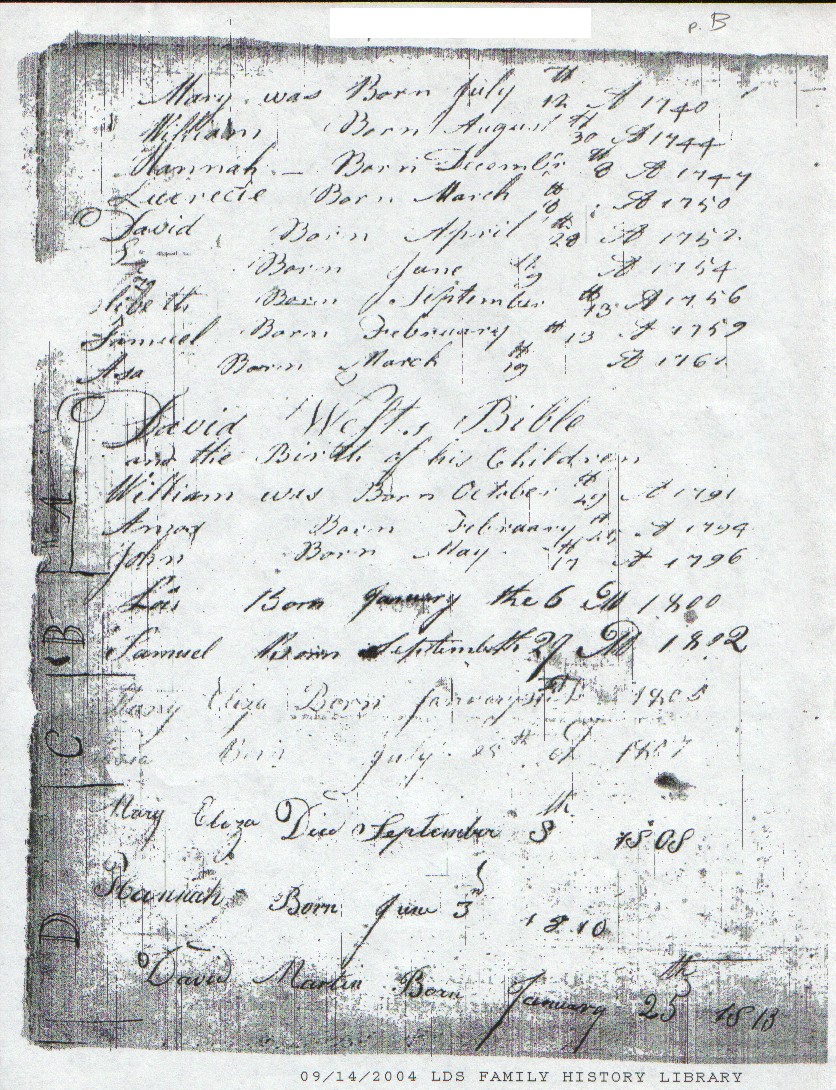 p. B
Mary was Born July 12 th A 1740
William Born August 30 th A 1744
Hannah - Born Decembr 8 th A 1747
Lucrecie Born March 8 th A 1750
David Born April 28 th A 1752
Born June 9 A 1754
Born September 13 th A 1756
Samuel Born February 13 th A 1759
Asa Born March 19 th A 1761
David West,s Bible
and the Birth of his Children
William was Born October 29 th A 1791
Born February th A 1794
John Born May 17 th A 1796
A
Lois Born January the 6 AD 1800
B
Samuel Born September th 29 AD 1802
Mary Eliza Born January 1805
C
Born July 25 th A 1807
Mary Eliza Died September 8 th 1808
Hannah Born June 3 1810
D
David Martin Born January 25 th 1813
09/14/2004 LDS FAMILY HISTORY LIBRARY